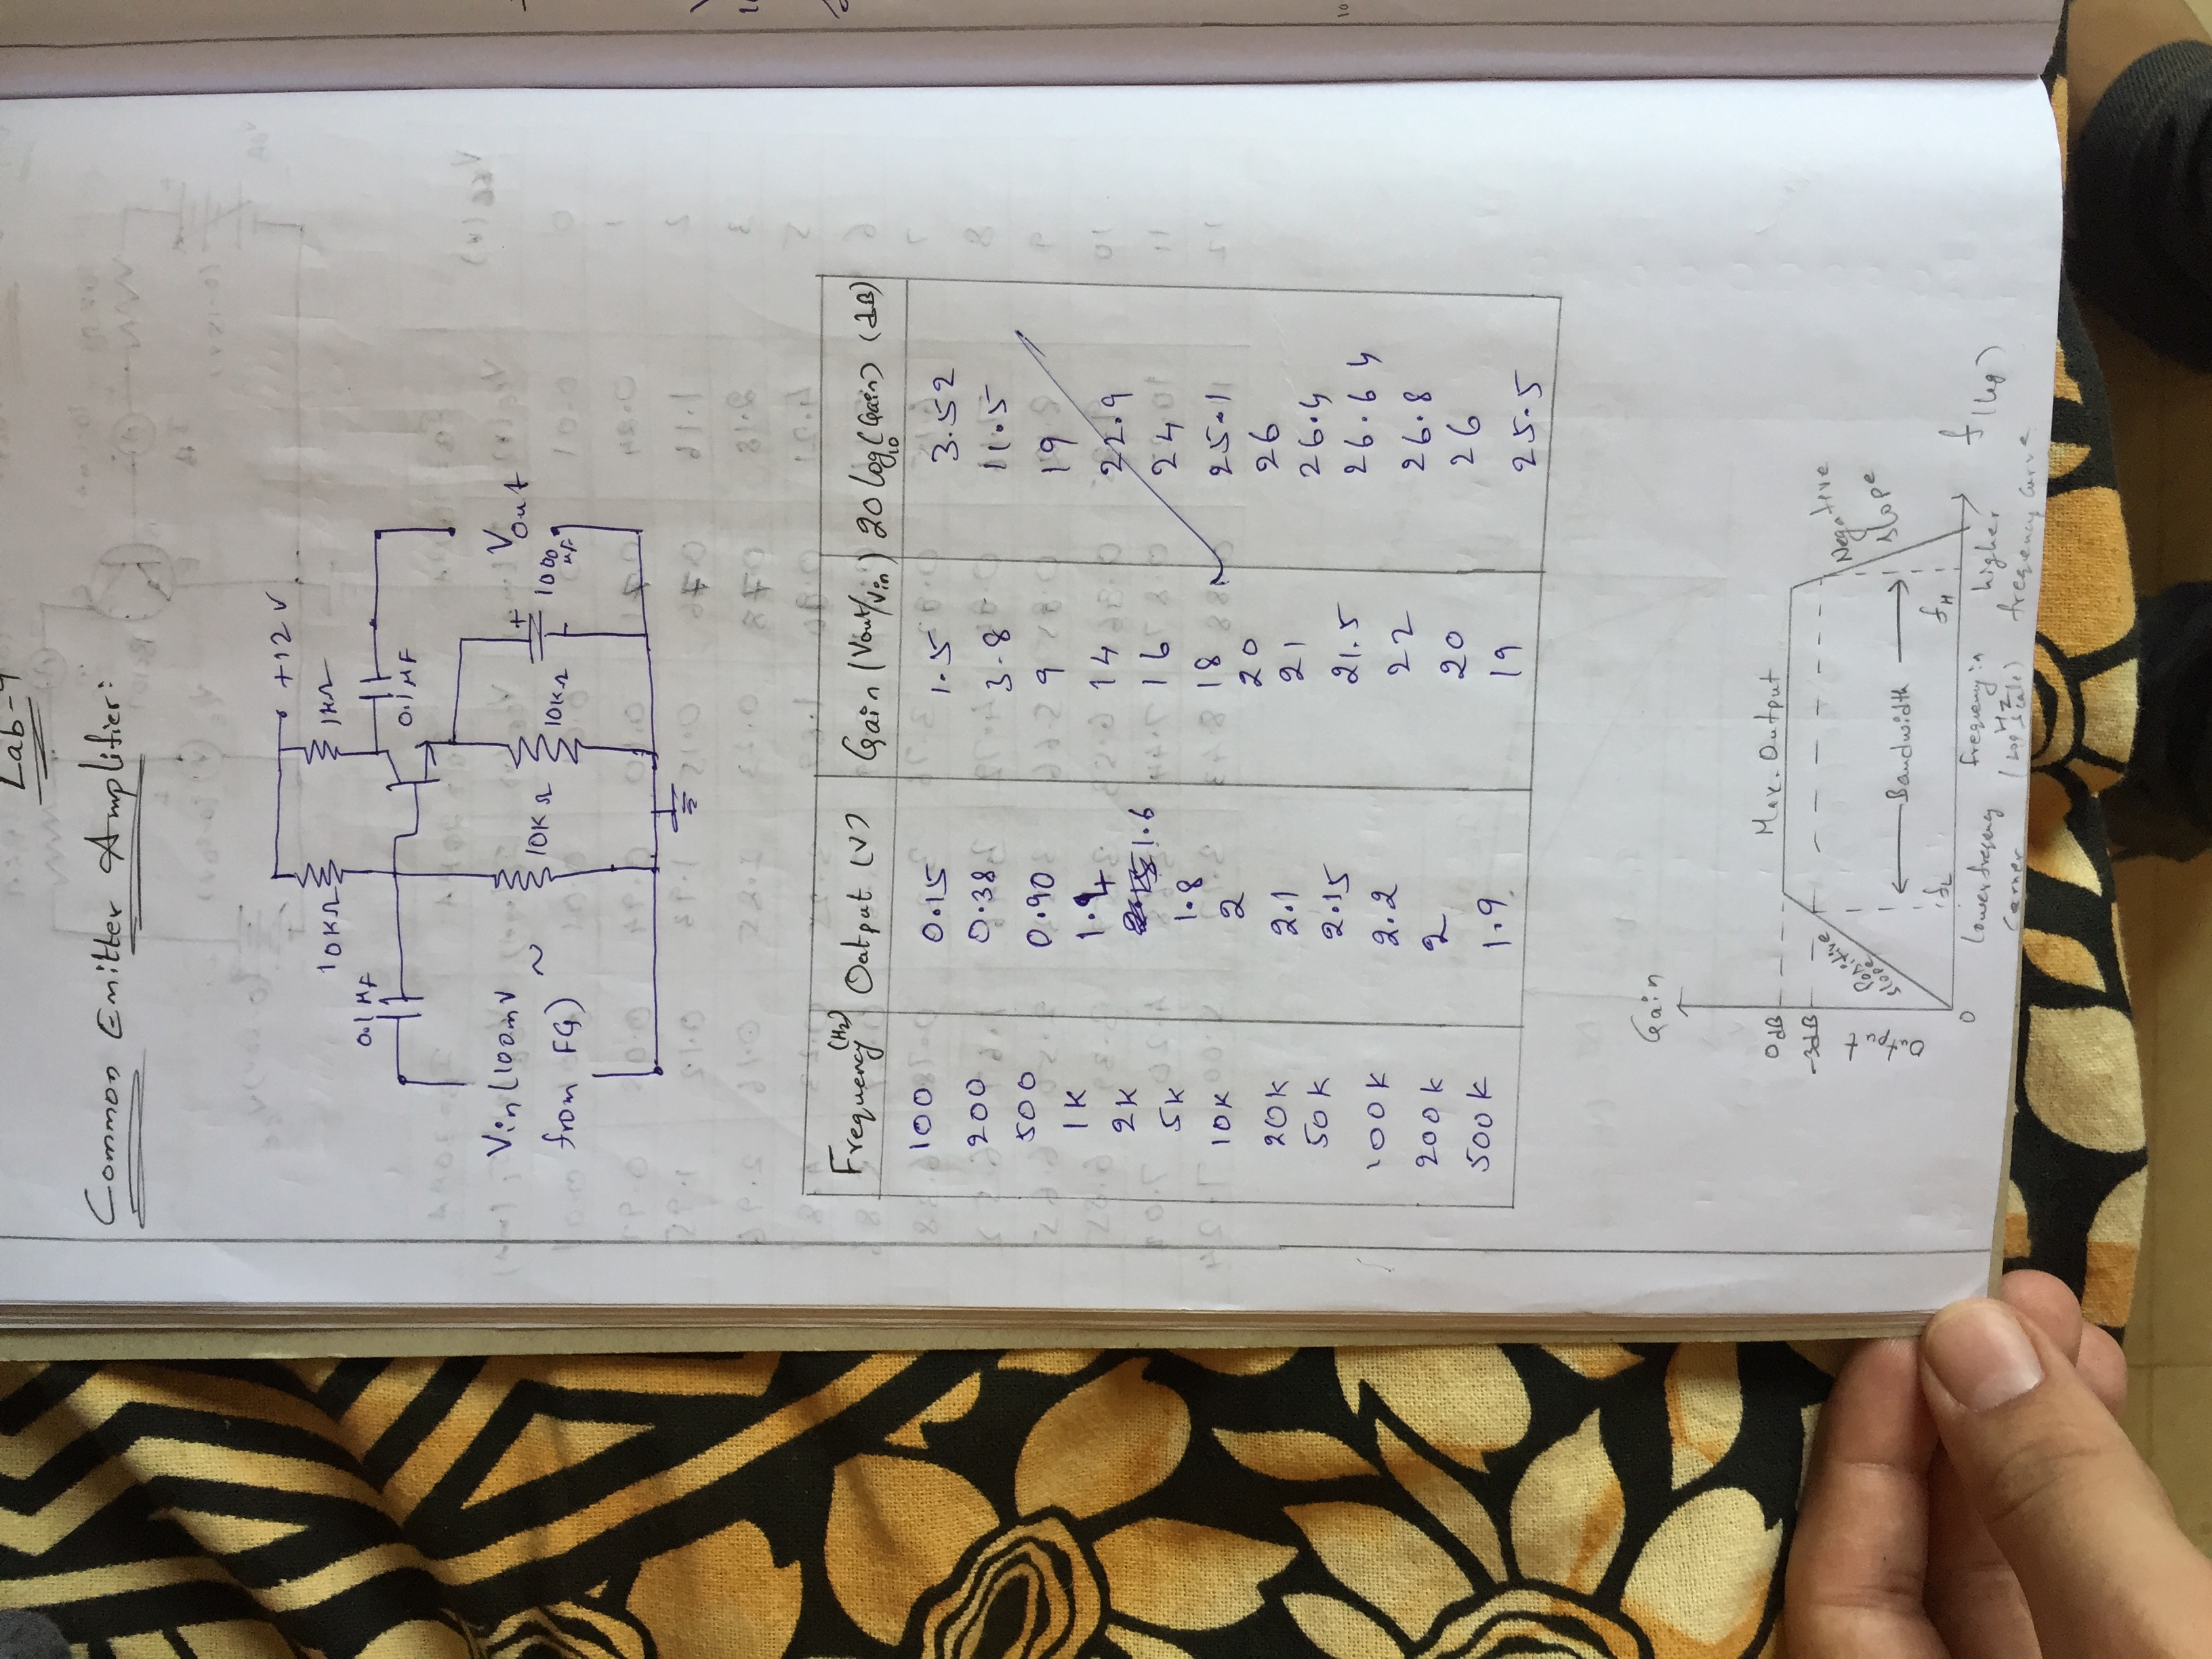 Lab-9
Common Emitter Amplifier:
+12 V
10KΩ 1KΩ
0.1 µF
0.1 µF
Vin (100mV
from FG) ~
10KΩ
10KΩ
+
-
1000
µF
Vout
Frequency (Hz) Oatput (V) Gain (Vout/Vin) 20 log10 (Gain) (dB)
100 0.15 1.5 3.52
200 0.38 3.8 11.5
500 0.90 9 19
1K 1.4 14 22.9
2K 1.6 16 24
5K 1.8 18 25.1
10K 2 20 26
20K 2.1 21 26.4
50K 2.15 21.5 26.64
100K 2.2 22 26.8
200K 2 20 26
500K 1.9 19 25.5
Gain
0dB
Max. Output
-3dB
Output
Positive
slope
Negative
slope
Bandwidth
fL
fH
0
f(log)
lower freqency
corner
frequency in
Hz
(Log scale)
higher
frequency curve